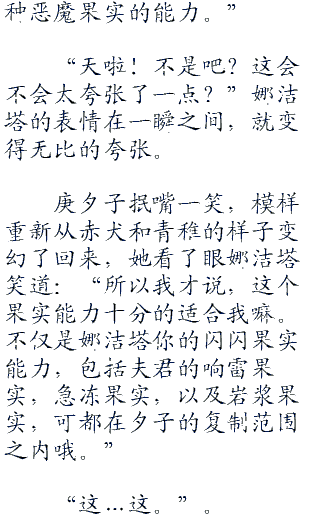 种恶魔果实的能力。”
“天啦！不是吧？这会
不会太夸张了一点？”娜洁
塔的表情在一瞬之间，就变
得无比的夸张。
庚夕子抿嘴一笑，模样
重新从赤犬和青稚的样子变
幻了回来，她看了眼娜洁塔
笑道：“所以我才说，这个
果实能力十分的适合我嘛。
不仅是娜洁塔你的闪闪果实
能力，包括夫君的响雷果
实，急冻果实，以及岩浆果
实，可都在夕子的复制范围
之内哦。”
“这…这。”。